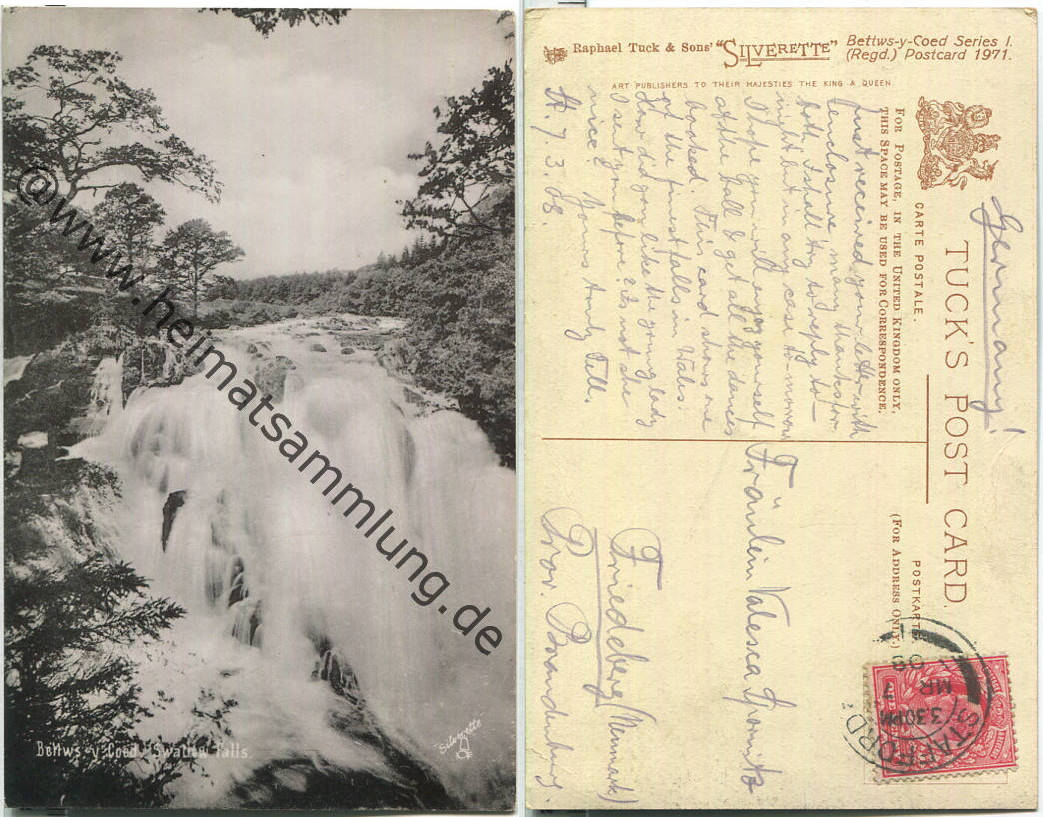 Bettws-y-Coed, Swallow Falls.
"Silverette"
@www.heimatsammlung.de
Raphael Tuck & Sons' "SILVERETTE" Bettws-y-Coed Series I.
(Regd.) Postcard 1971.
ART PUBLISHERS TO THEIR MAJESTIES THE KING & QUEEN
Germany!
TUCK'S POST CARD
CARTE POSTALE.
POSTKARTE
FOR POSTAGE, IN THE UNITED KINGDOM ONLY,
THIS SPACE MAY BE USED FOR CORRESPONDENCE.
(FOR ADDRESS ONLY.)
Just received your letter with
enclosure, many thanks for
both. I shall try to reply to-
night but in any case to-morrow
I hope you will enjoy yourself
at the ball & get all the dances
booked. This card shows one
of the finest falls in Wales.
How did you like the young lady
I sent you before? Is not she
nice? Yours truly Till.
St. 7. 3. 08
Fräulein Valesca Gornitz
Friedeberg (Neumark)
Prov. Brandenburg.
STAFFORD
3.30 PM
MR 7
08